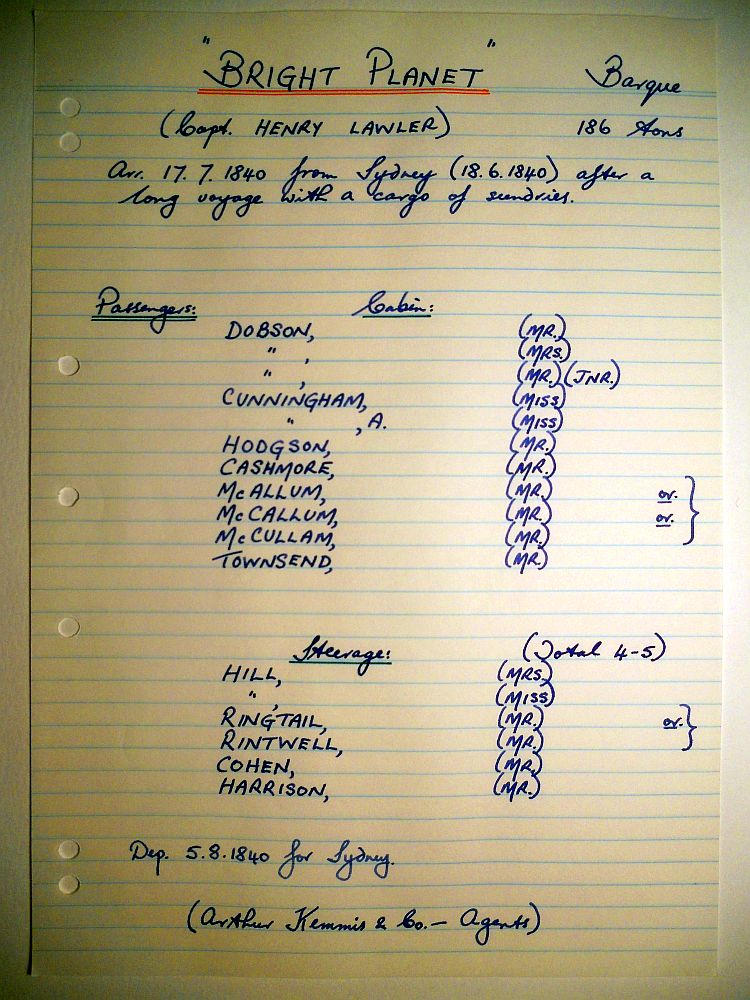 "BRIGHT PLANET" Barque
(Capt. HENRY LAWLER) 186 tons
Arr. 17.7.1840 from Sydney (18.6.1840) after a
long voyage with a cargo of sundries.
Passengers: Cabin:
DOBSON, (MR.)
" , (MRS.)
" , (MR.) (JNR.)
CUNNINGHAM, (MISS)
" , A. (MISS)
HODGSON, (MR.)
CASHMORE, (MR.)
McALLUM, (MR.) or. }
McCALLUM, (MR.) or.
McCULLAM, (MR.)
TOWNSEND, (MR.)
Steerage: (Total 4-5)
HILL, (MRS.)
" , (MISS)
RINGTAIL, (MR.) or. }
RINTWELL, (MR.)
COHEN, (MR.)
HARRISON, (MR.)
Dep. 5.8.1840 for Sydney.
(Arthur Kemmis & Co. - Agents)